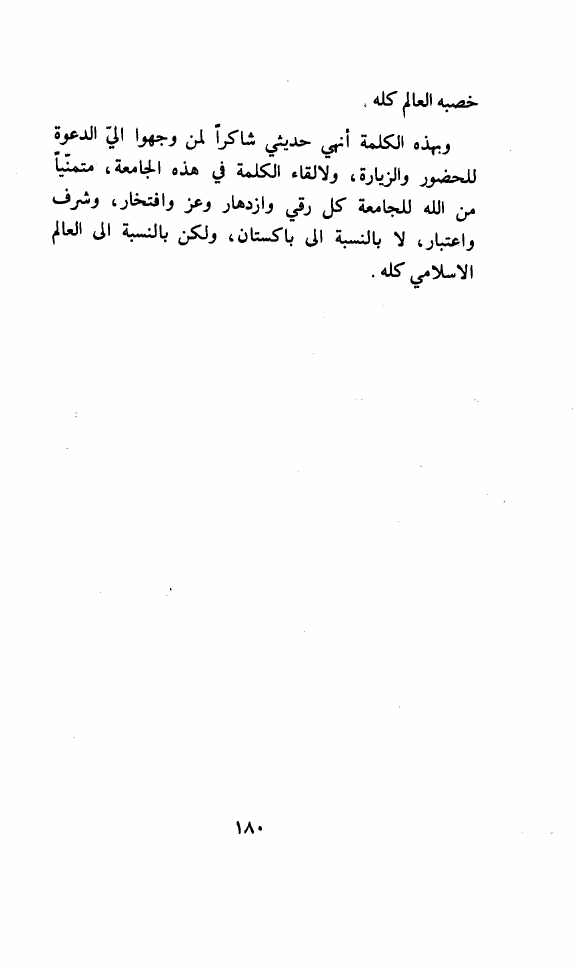 خصبه العالم كله .
وبهذه الكلمة أنهي حديثي شاكراً لمن وجهوا اليّ الدعوة
للحضور والزيارة، ولالقاء الكلمة في هذه الجامعة، متمنّياً
من الله للجامعة كل رقي وازدهار وعز وافتخار، وشرف
واعتبار، لا بالنسبة الى باكستان، ولكن بالنسبة الى العالم
الاسلامي كله .
١٨٠